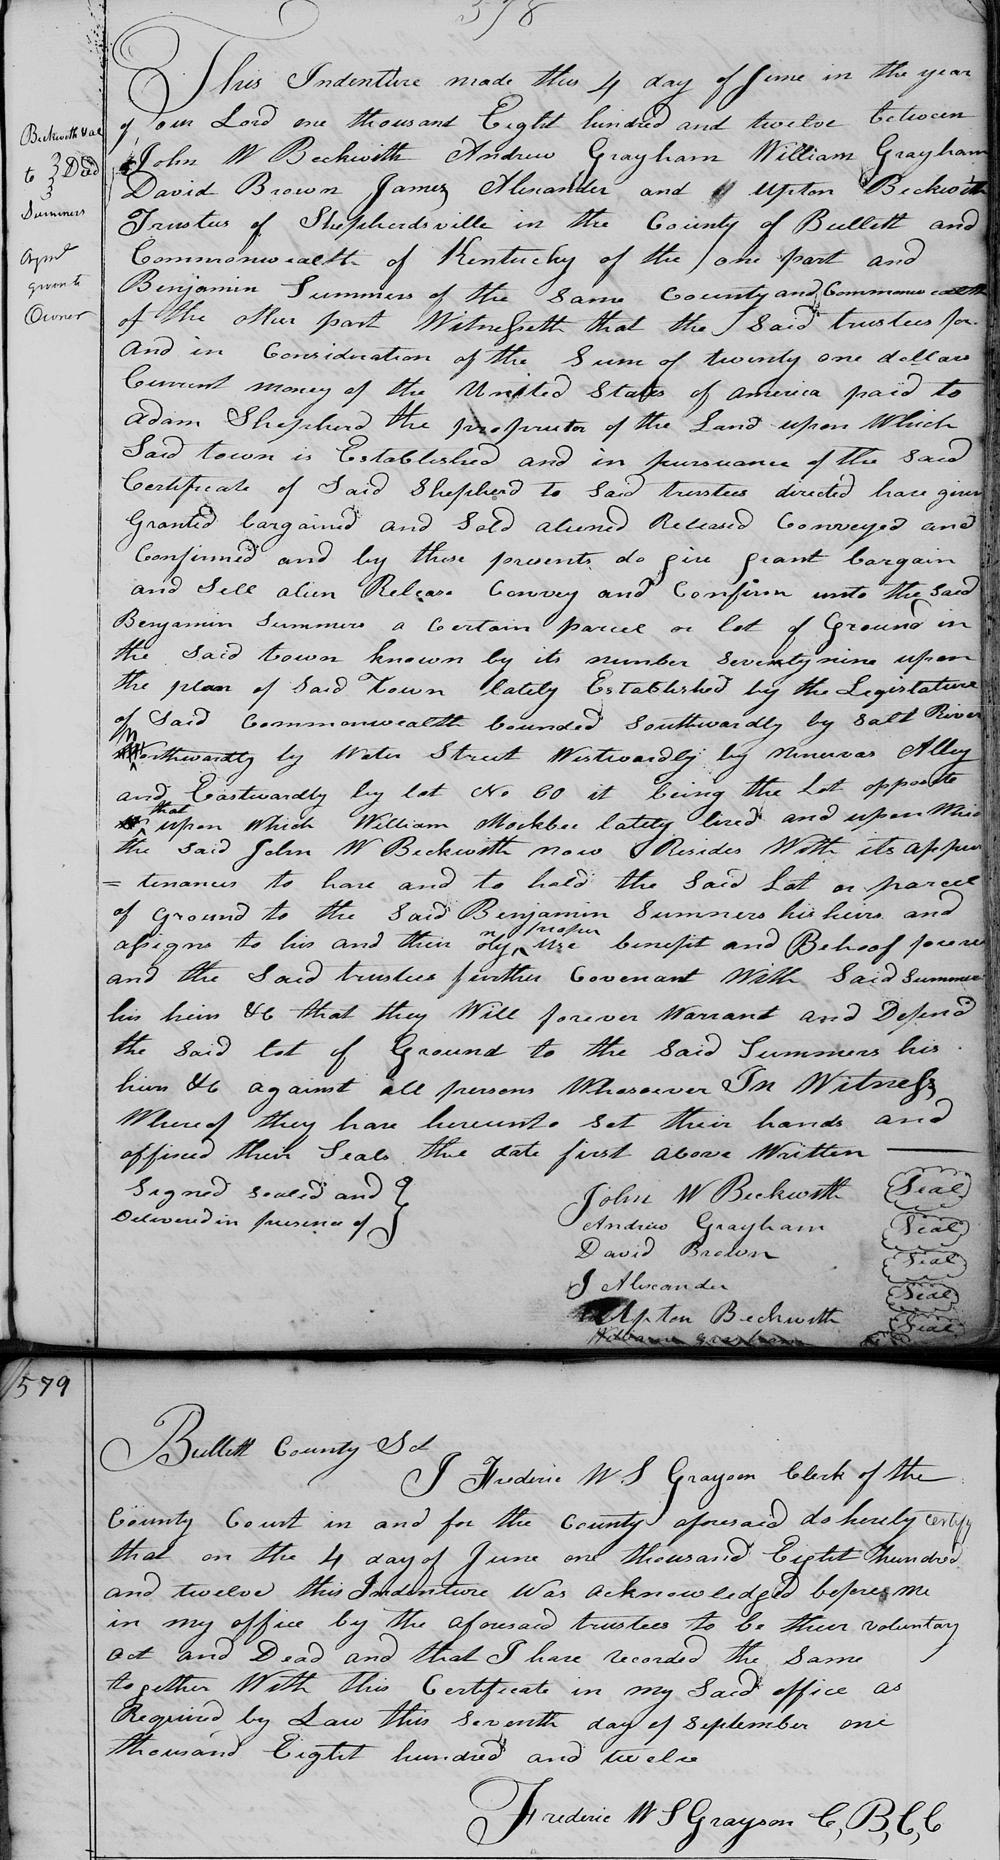 578
This Indenture made this 4 day of June in the year
of our Lord one thousand Eight hundred and twelve between
John W Beckwith Andrew Grayham William Grayham
David Brown James Alexander and Upton Beckwith
Trustees of Shepherdsville in the County of Bullett and
Commonwealth of Kentucky of the one part and
Benjamin Summers of the same County and Commonwealth
of the other part Witnesseth that the said trustees for
and in Consideration of the Sum of twenty one dollars
Current money of the United States of America paid to
Adam Shepherd the proprietor of the Land upon Which
Said town is Established and in pursuance of the said
Certificate of Said Shepherd to Said trustees directed have given
Granted bargained and Sold aliened Released Conveyed and
Confirmed and by these presents do give grant bargain
and Sell alien Release Convey and Confirm unto the said
Benjamin Summers a Certain parcel or lot of Ground in
the Said town known by its number Seventy nine upon
the plan of Said Town lately Established by the Legislature
of Said Commonwealth bounded Southwardly by Salt River
Northwardly by Water Street Westwardly by Minervas Alley
and Eastwardly by lot No 60 it being the Lot opposite
that upon Which William Mockbee lately lived and upon Which
the said John W Beckwith now Resides With its appur
= tenances to have and to hold the Said Lot or parcel
of Ground to the Said Benjamin Summers his heirs and
assigns to his and their only proper Use benefit and Behoof forever
and the Said trustees further Covenant With Said Summers
his heirs &c that they Will forever Warrant and Defend
the said lot of Ground to the said Summers his
heirs &c against all persons Whosoever In Witness
Whereof they have hereunto Set their hands and
affixed their Seals the date first above Written
Beckwith &al
to Deed
Summers
Owner
Signed Sealed and
Delivered in presence of
John W Beckwith Seal
Andrew Grayham Seal
David Brown Seal
J Alexander Seal
Upton Beckwith Seal
579
Bullett County Sct
I Frederic W S Grayson Clerk of the
County Court in and for the County aforesaid do hereby certify
that on the 4 day of June one thousand Eight hundred
and twelve this Indenture Was acknowledged before me
in my office by the aforesaid trustees to be their voluntary
act and Dead and that I have recorded the Same
together With this Certificate in my Said office as
Required by Law this Seventh day of September one
thousand Eight hundred and twelve
Frederic W S Grayson C, B, C, C